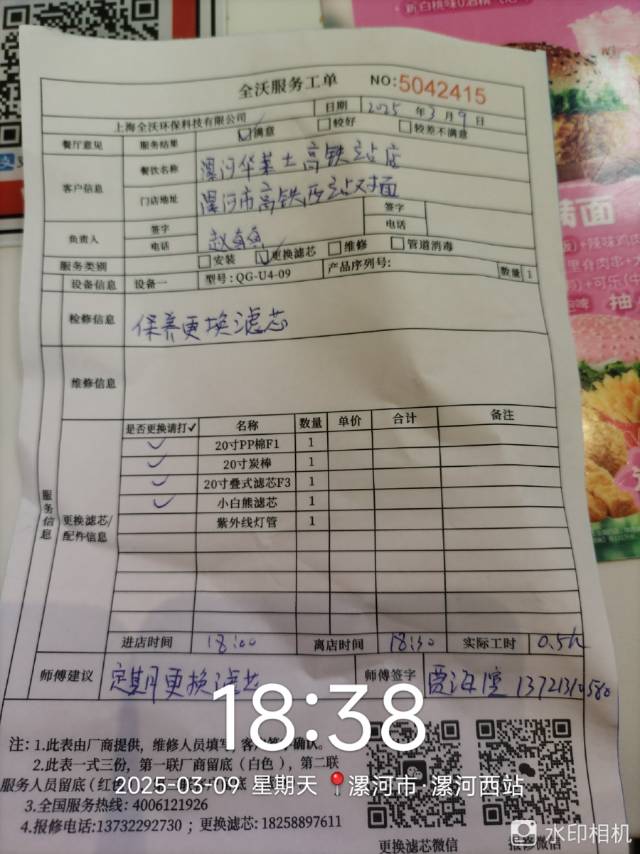 +新白桃味
全沃服务工单 NO:5042415
上海全沃环保科技有限公司 日期 2025 年 3 月 9 日
餐厅意见 服务结果 ☑满意 □较好 □较差不满意
客户信息 餐饮名称 漯河华莱士高铁站店
门店地址 漯河市高铁西站对面
负责人 签字 签字
电话 电话
服务类别 □安装 ☑更换滤芯 □维修 □管道消毒
设备信息 设备一 型号:QG-U4-09 产品序列号: 数量 1
检修信息 保养更换滤芯
维修信息
服务信息
更换滤芯/配件信息
是否更换请打✓ 名称 数量 单价 合计 备注
✓ 20寸PP棉F1 1
✓ 20寸炭棒 1
✓ 20寸叠式滤芯F3 1
✓ 小白熊滤芯 1
紫外线灯管 1
进店时间 18:00 离店时间 18:30 实际工时 0.5h
师傅建议 定期更换滤芯 师傅签字 贾海 13721310580
18:38
2025-03-09 星期天 漯河市·漯河西站
注: 1.此表由厂商提供，维修人员填写，客户签字确认。
2.此表一式三份，第一联厂商留底（白色），第二联
服务人员留底(红色
3.全国服务热线: 4006121926
4.报修电话:13732292730 ; 更换滤芯: 18258897611
更换滤芯微信 报修微信
水印相机
满面
+辣味鸡
+可乐
抽